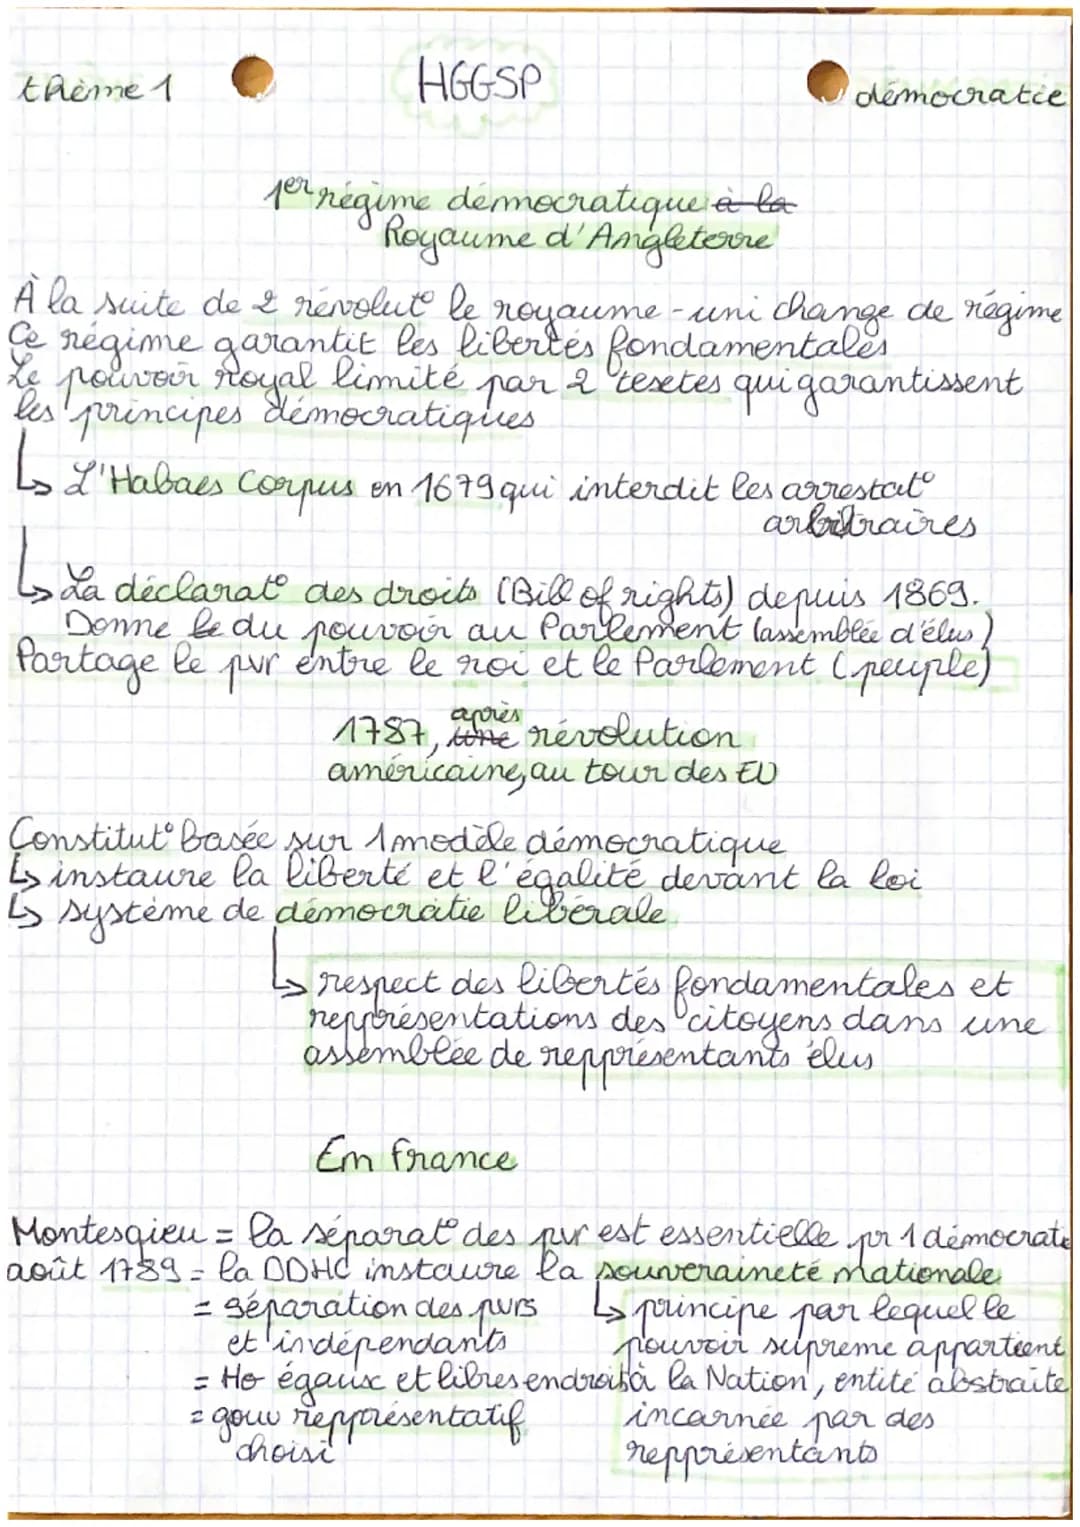 thème 1 HGGSP démocratie
1er régime démocratique à la
Royaume d'Angleterre
À la suite de 2 révolut° le royaume-uni change de régime
Ce régime garantit les libertés fondamentales
Le pouvoir royal limité par 2 tesctes qui garantissent
les principes démocratiques
↳ L'Habaes Corpus en 1679 qui interdit les arrestat°
arbitraires
↳ La déclarat° des droits (Bill of rights) depuis 1869.
Donne le du pouvoir au Parlement (assemblée d'élus)
Partage le pvr entre le roi et le Parlement (peuple)
après
1787, une révolution
américaine, au tour des EU
Constitut° basée sur 1 modèle démocratique
↳ instaure la liberté et l'égalité devant la loi
↳ système de démocratie libérale
↳ respect des libertés fondamentales et
repprésentations des citoyens dans une
assemblée de repprésentants élus
En france
Montesqieu = la séparat° des pvr est essentielle pr 1 démocratie
août 1789 = la DDHC instaure la souveraineté nationale
= séparation des pvrs ↳ principe par lequel le
et indépendants pouvoir supreme appartient
= Ho égaux et libres en droits à la Nation, entité abstraite
= gouv repprésentatif incarnée par des
choisi repprésentants